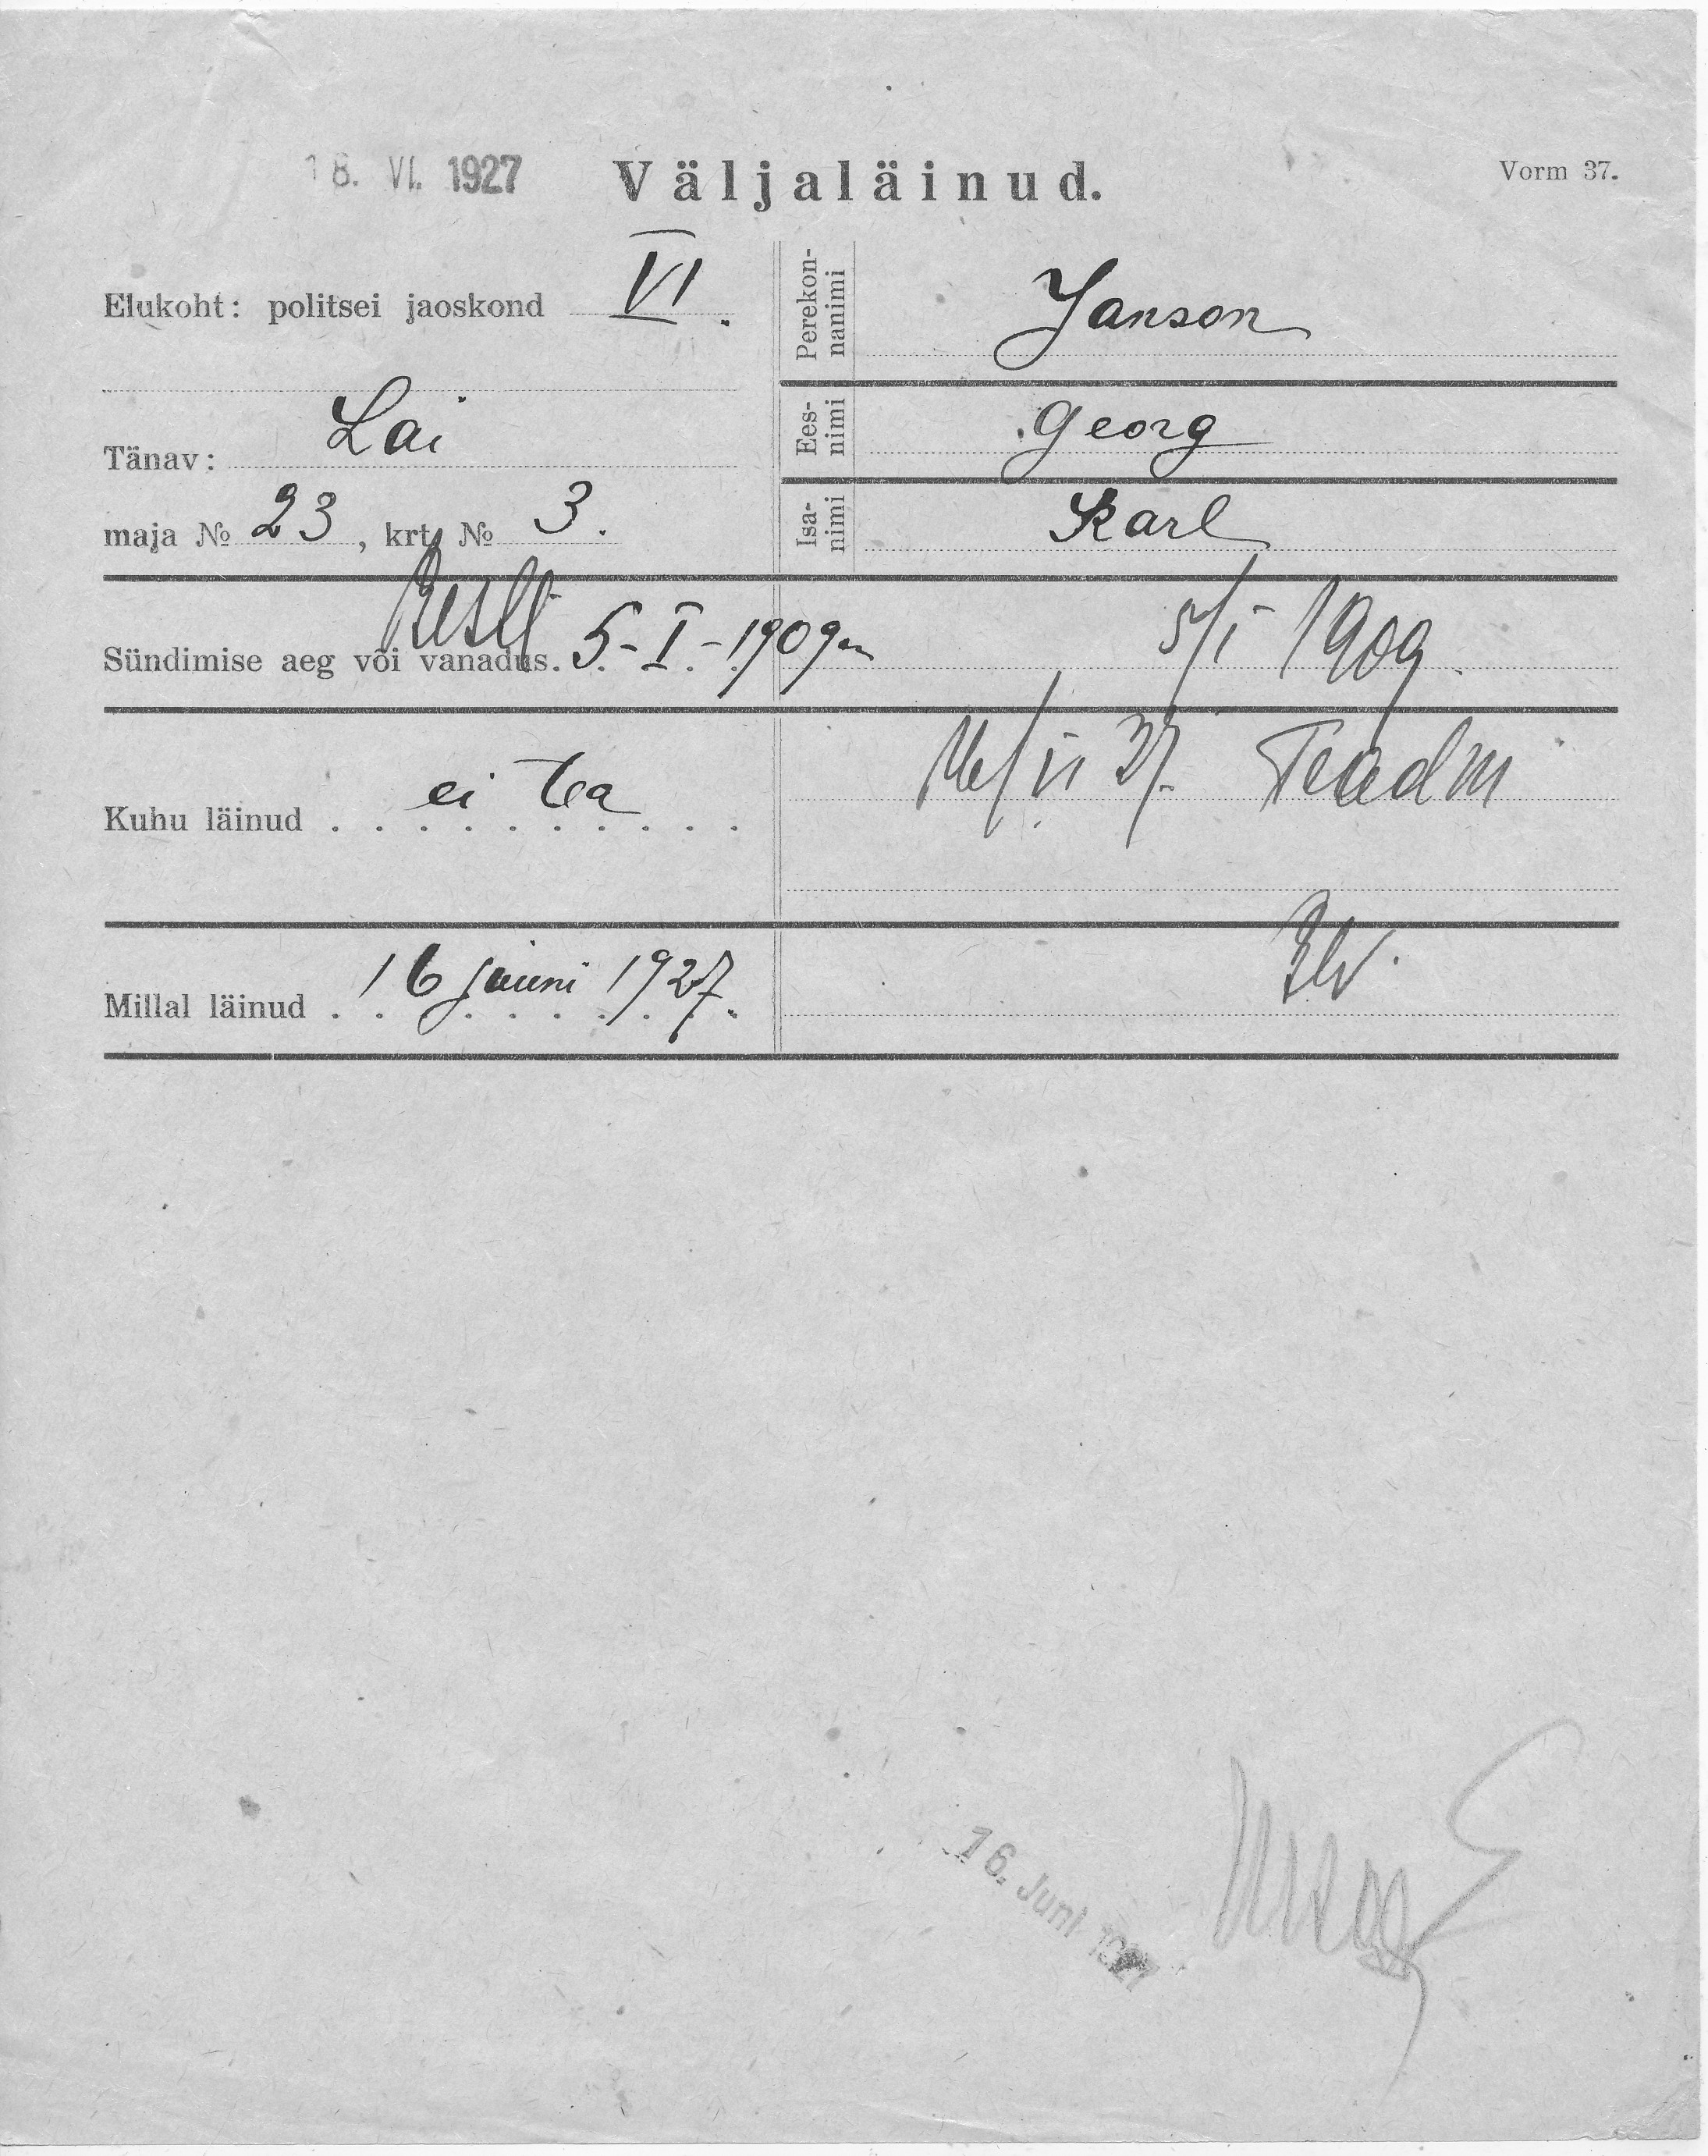 18. VI. 1927
Väljaläinud.
Vorm 37.
Elukoht: politsei jaoskond VI.
Perekon-
nanimi
Janson
Tänav: Lai
Ees-
nimi
Georg
maja № 23, krt. № 3.
Isa-
nimi
Karl
Sündimise aeg või vanadus. 5-I-1909
5/I 1909.
Kuhu läinud ei tea
16/VI 27. Teadm
Millal läinud 16 juuni 1927.
16. Juni 1927